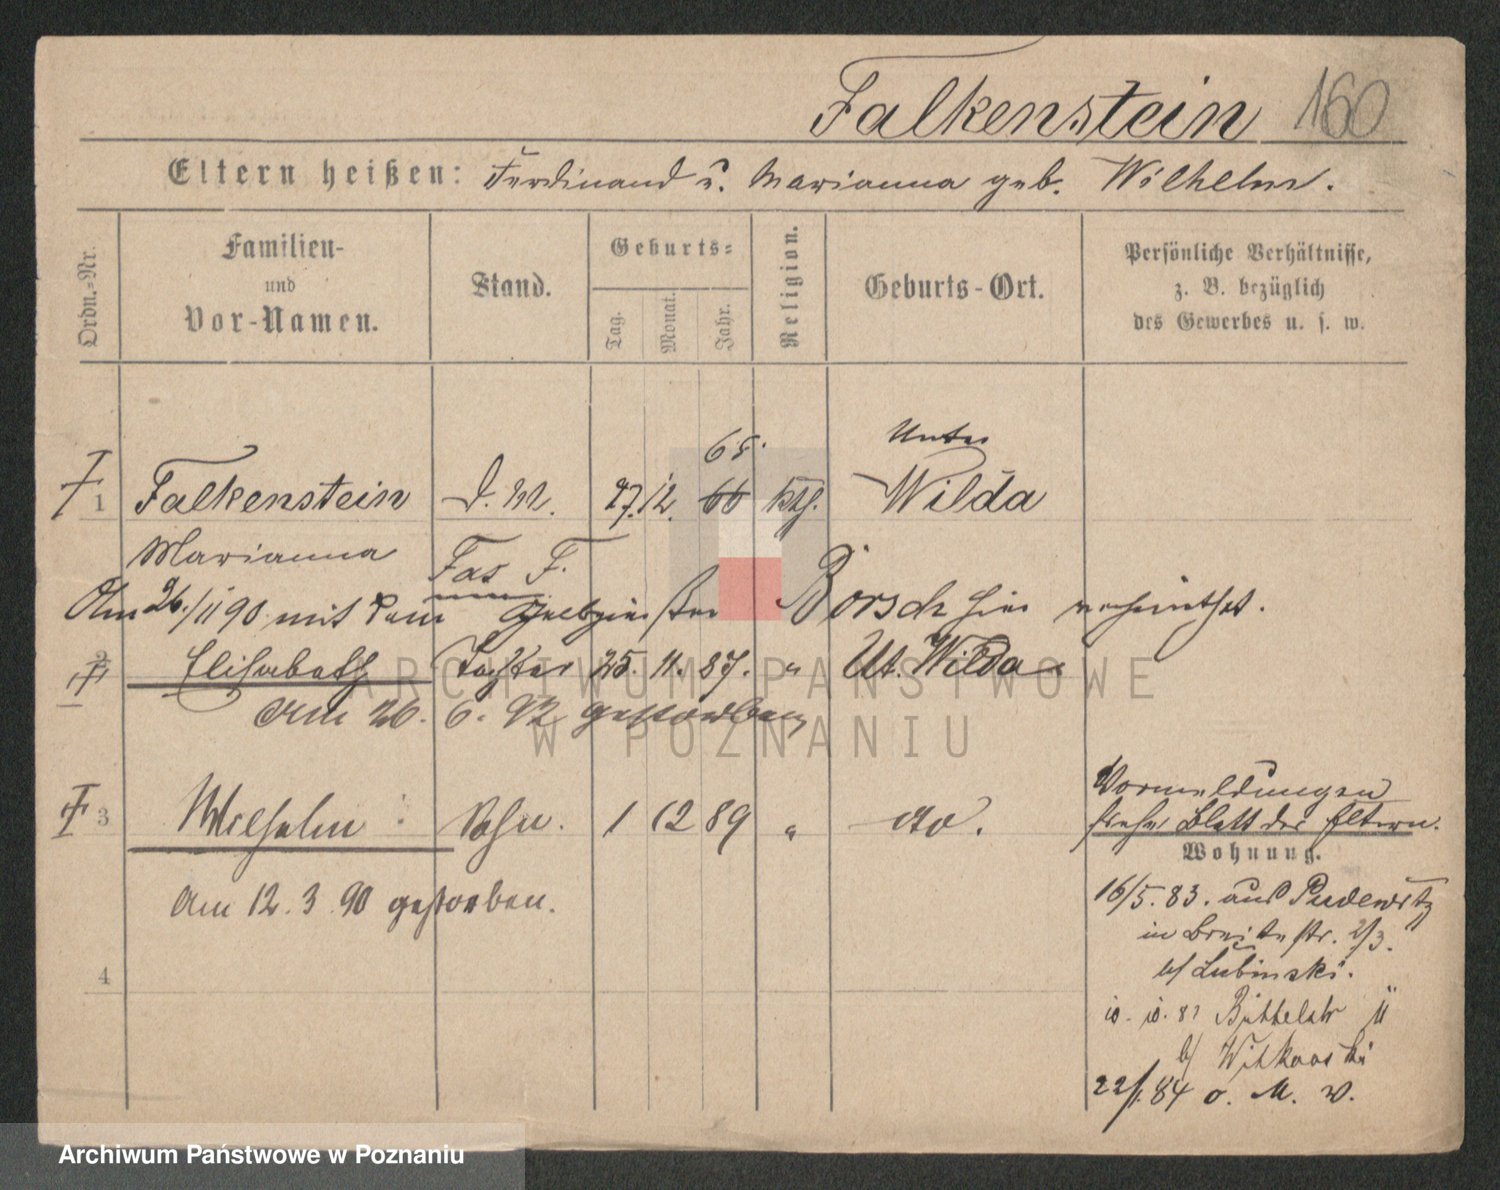 Falkenstein 160
Eltern heißen: Ferdinand u. Marianna geb. Wilhelm.
Ordn.=Nr.
Familien-
und
Vor-Namen.
Stand.
Geburts=
Tag.
Monat.
Jahr.
Religion.
Geburts-Ort.
Persönliche Verhältnisse,
z. B. bezüglich
des Gewerbes u. s. w.
68. Unter
1 Falkenstein D. M. 27. 12. 66 kth. Wilda
Marianna Fas F.
Am 26./11 90 mit dem Gelbgießer Borsch hier verheirathet.
2 Elisabeth Tochter 25. 11. 87. " Ut. Wilda
Am 26. 6. 92 gestorben
3 Wilhelm Sohn. 1 12 89 " do.
Am 12. 3. 90 gestorben.
4
Vormeldungen
siehe Blatt der Eltern.
Wohnung.
16/5. 83. aus Pudewitz
in Breitestr. 2/3.
b/ Lubinski.
10. 10. 83 Büttelstr 11
b/ Witkowski
22/1. 84 o. M. v.
ARCHIWUM PAŃSTWOWE
W POZNANIU
Archiwum Państwowe w Poznaniu